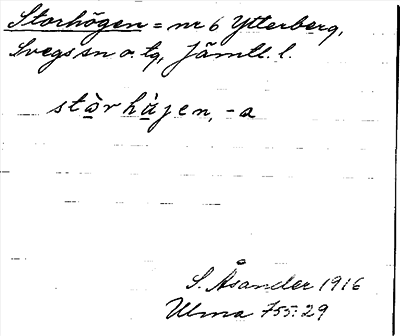 Storhögen = nr 6 Ytterberg,
Svegs sn o. tg, Jämtl. l.
stàrhàgen, -a
S. Åsander 1916
Ulma 755:29